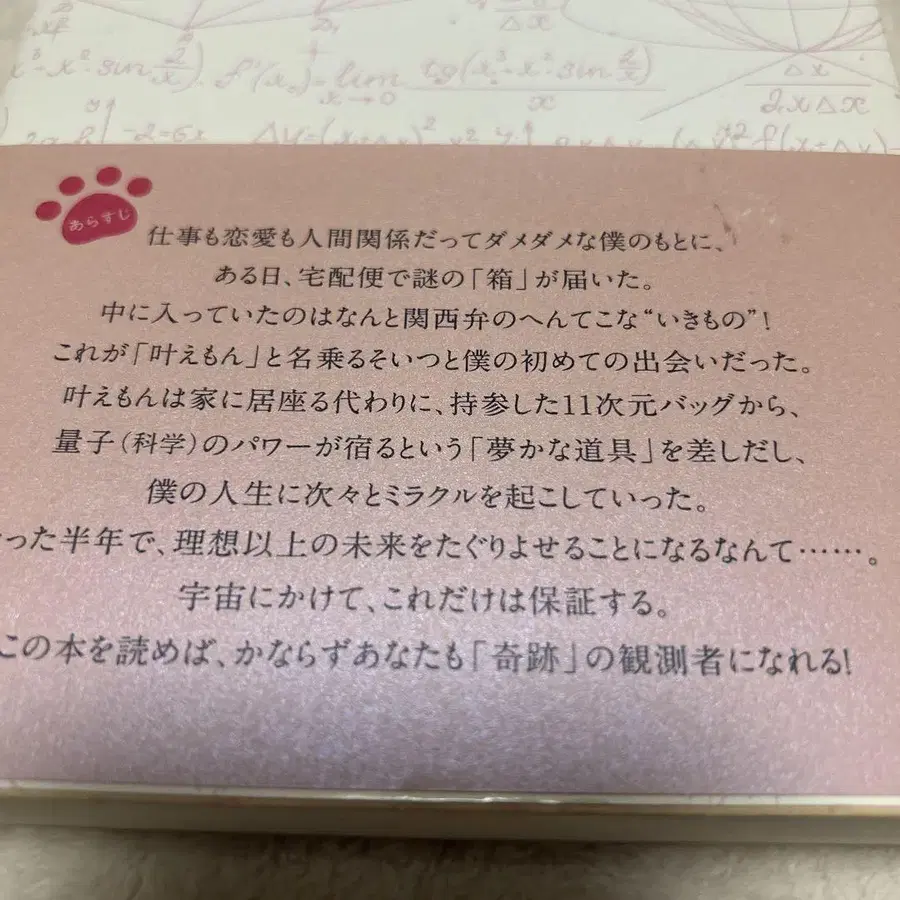 x³-x²·sin 2/x f'(x₀)=lim x→0 tg(x³+x²·sin 2/x) x
Δx
Δx
2x Δx
-2=6x
あらすじ
仕事も恋愛も人間関係だってダメダメな僕のもとに、
ある日、宅配便で謎の「箱」が届いた。
中に入っていたのはなんと関西弁のへんてこな“いきもの”!
これが「叶えもん」と名乗るそいつと僕の初めての出会いだった。
叶えもんは家に居座る代わりに、持参した11次元バッグから、
量子(科学)のパワーが宿るという「夢かな道具」を差しだし、
僕の人生に次々とミラクルを起こしていった。
った半年で、理想以上の未来をたぐりよせることになるなんて……。
宇宙にかけて、これだけは保証する。
この本を読めば、かならずあなたも「奇跡」の観測者になれる!